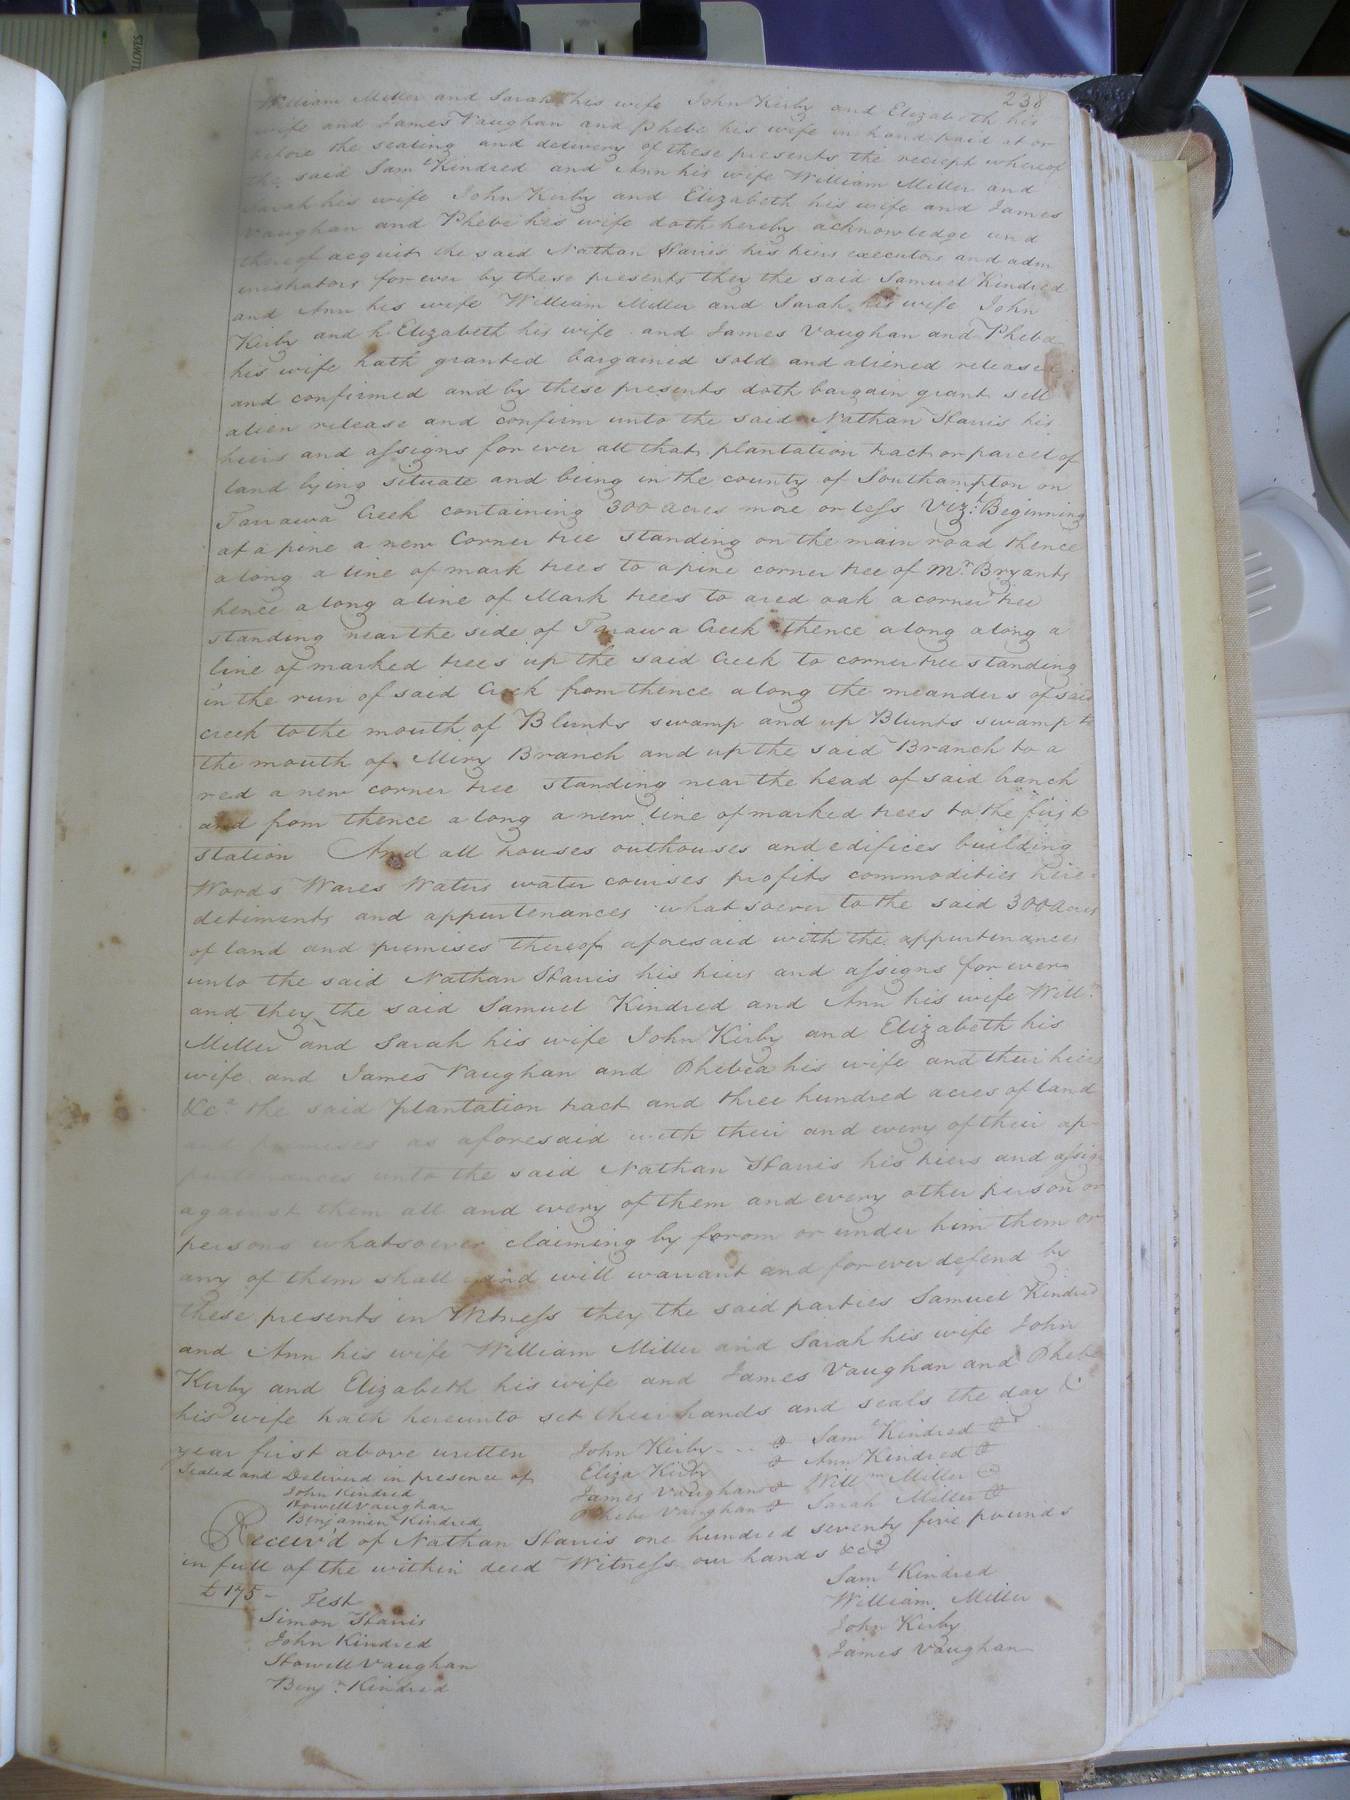 238
William Miller and Sarah his wife John Kirby and Elizabeth his
wife and James Vaughan and Phebe his wife in hand paid at or
before the sealing and delivery of these presents the reciept whereof
the said Saml Kindred and Ann his wife William Miller and
Sarah his wife John Kirby and Elizabeth his wife and James
Vaughan and Phebe his wife doth hereby acknowledge and
thereof acquit the said Nathan Harris his hiers executors and adm
inistrators for ever by these presents they the said Samuel Kindred
and Ann his wife William Miller and Sarah his wife John
Kirby and h Elizabeth his wife and James Vaughan and Phebe
his wife hath granted bargained sold and aliened released
and confirmed and by these presents doth bargain grant sell
alien release and confirm unto the said Nathan Harris his
hiers and assigns for ever all that plantation tract or parcel of
land lying situate and being in the county of Southampton on
Tarrawa Creek containing 300 acres more or less Vizt Beginning
at a pine a new Corner tree standing on the main road thence
along a line of mark trees to a pine corner tree of Mr Bryants
hence along a line of Mark trees to a red oak a corner tree
standing near the side of Tarawa Creek thence along along a
line of marked trees up the said Creek to corner tree standing
in the run of said Creek from thence along the meanders of said
creek to the mouth of Blunts swamp and up Blunts swamp to
the mouth of Miry Branch and up the said Branch to a
red a new corner tree standing near the head of said branch
and from thence along a new line of marked trees to the first
station And all houses outhouses and edifices building
Woods Wares Waters water courses profits commodities here
detiments and appurtenances whatsoever to the said 300 acres
of land and premises thereof aforesaid with the appurtenances
unto the said Nathan Harris his hiers and assigns for ever
and they the said Samuel Kindred and Ann his wife Willm
Miller and Sarah his wife John Kirby and Elizabeth his
wife and James Vaughan and Phebea his wife and their hiers
&ca the said plantation tract and three hundred acres of land
and premises as aforesaid with their and every of their ap
purtenances unto the said Nathan Harris his hiers and assigns
against them all and every of them and every other person or
persons whatsoever claiming by forom or under him them or
any of them shall and will warrant and for ever defend by
these presents in Witness they the said parties Samuel Kindred
and Ann his wife William Miller and Sarah his wife John
Kirby and Elizabeth his wife and James Vaughan and Phebe
his wife hath hereunto set their hands and seals the day &
year first above written John Kirby Saml Kindred
Sealed and Deliver'd in presence of Eliza Kirby Ann Kindred
John Kindred James Vaughan Willm Miller
Howell Vaughan Phebe Vaughan Sarah Miller
Benjamin Kindred
Receiv'd of Nathan Harris one hundred seventy five pounds
in full of the within deed Witness our hands &ca
£175- Test Saml Kindred
Simon Harris William Miller
John Kindred John Kirby
Howell Vaughan James Vaughan
Benjn Kindred